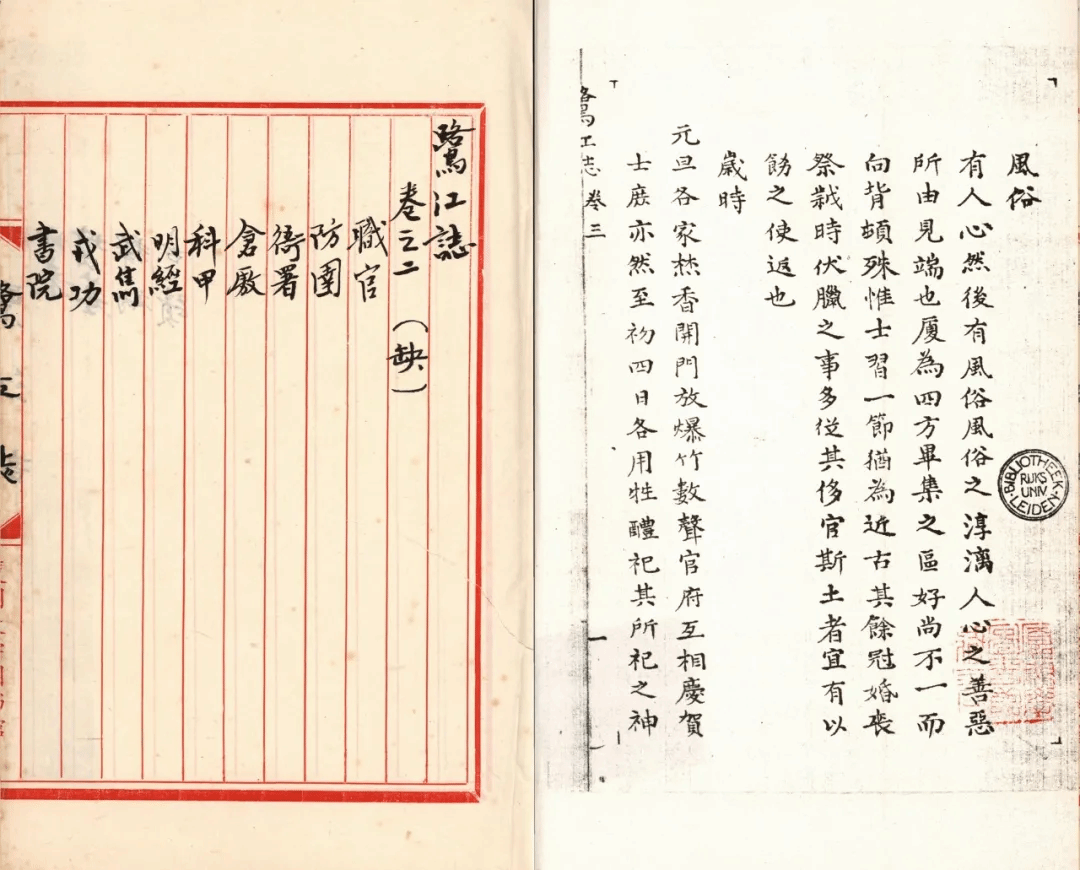 鷺江誌
卷之二 （缺）
職官
防圍
衙署
倉廒
科甲
明經
武雋
戎功
書院
鷺江志
風俗
有人心然後有風俗風俗之淳漓人心之善惡
所由見端也厦為四方畢集之區好尚不一而
向背頓殊惟士習一節猶為近古其餘冠婚丧
祭戟時伏臘之事多從其侈官斯土者宜有以
飭之使返也
歲時
元旦各家焚香開門放爆竹數聲官府互相慶賀
士庶亦然至初四日各用牲醴祀其所祀之神
鷺江志 卷三
一
BIBLIOTHEEK
RIJKS
UNIV.
LEIDEN